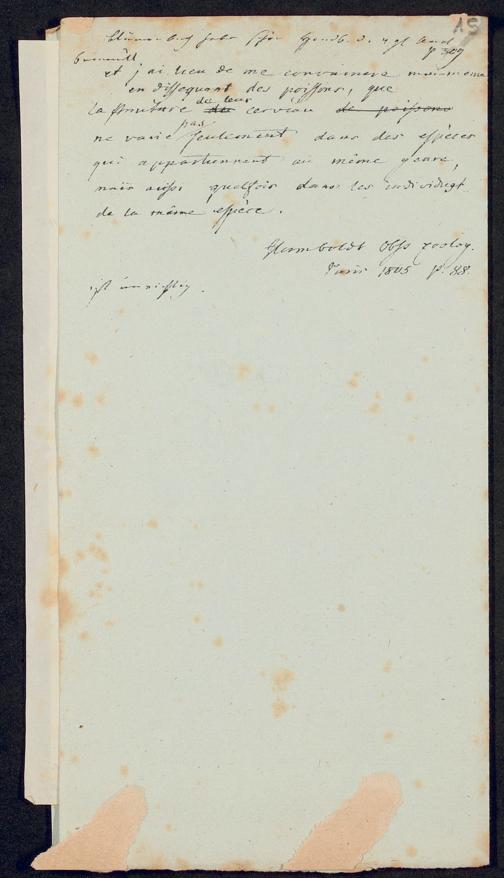 15
Blumenbach Handb. d. vgl. Anat.
p 309
et j'ai lieu de me convaincre moi meme
en dissequant des poissons, que
la structure du de leur cerveau de poissons
ne varie pas seulement dans des espèces
qui appartiennent au même genre,
mais aussi quelfois dans les individus
de la même espèce.
Humboldt Obss zoolog.
Paris 1805 p. 88.
ist unrichtig.